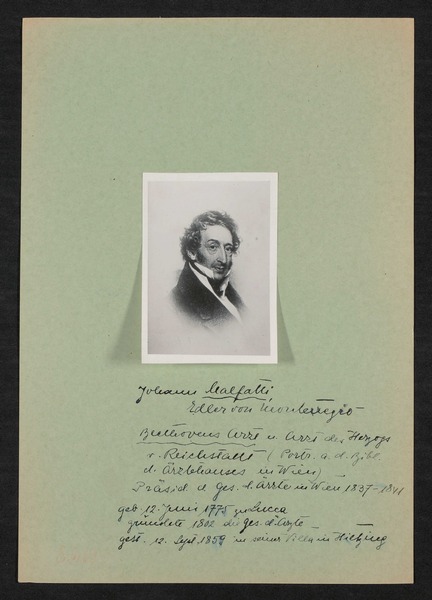 Johann Malfatti,
Edler von Monteregio
Beethovens Arzt u. Arzt des Herzogs
v. Reichstatt (Portr. a. d. Bibl.
d. Ärztehauses in Wien)
Präsid d Ges. d. Ärzte in Wien 1837-1841
geb. 12. Juni 1775 zu Lucca
gründete 1802 die Ges. d. Ärzte
gest. 12. Sept. 1859 in seiner Villa in Hietzing